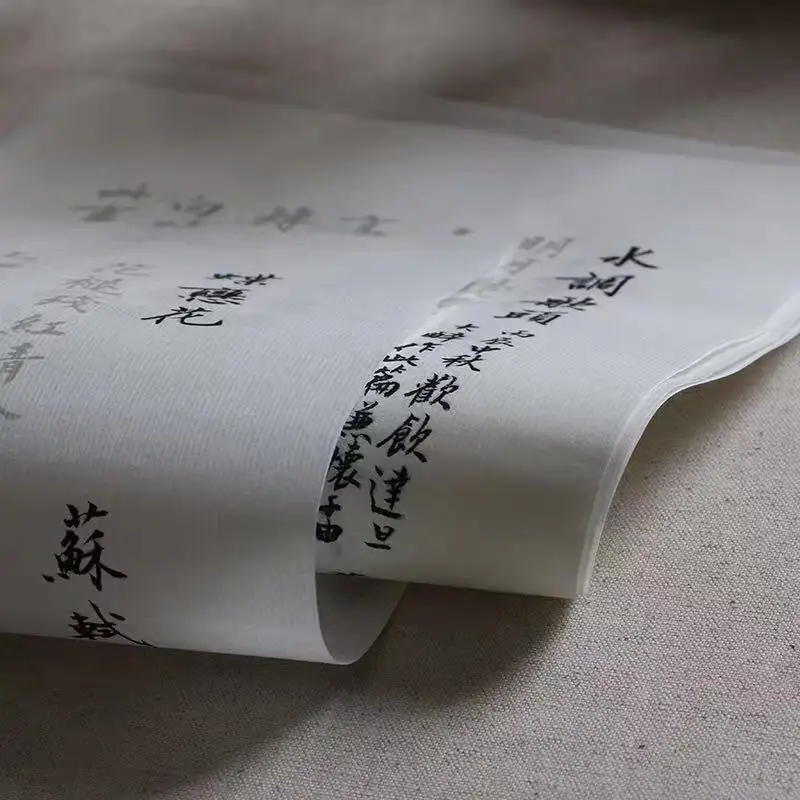 水調歌頭
丙辰中秋歡飲達旦
大醉作此篇兼懷子由
明月
蝶戀花
蘇軾
花褪殘紅青